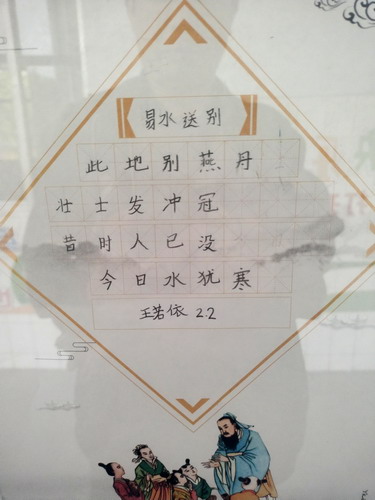 易水送别
此地别燕丹
壮士发冲冠
昔时人已没
今日水犹寒
王若依 2.2